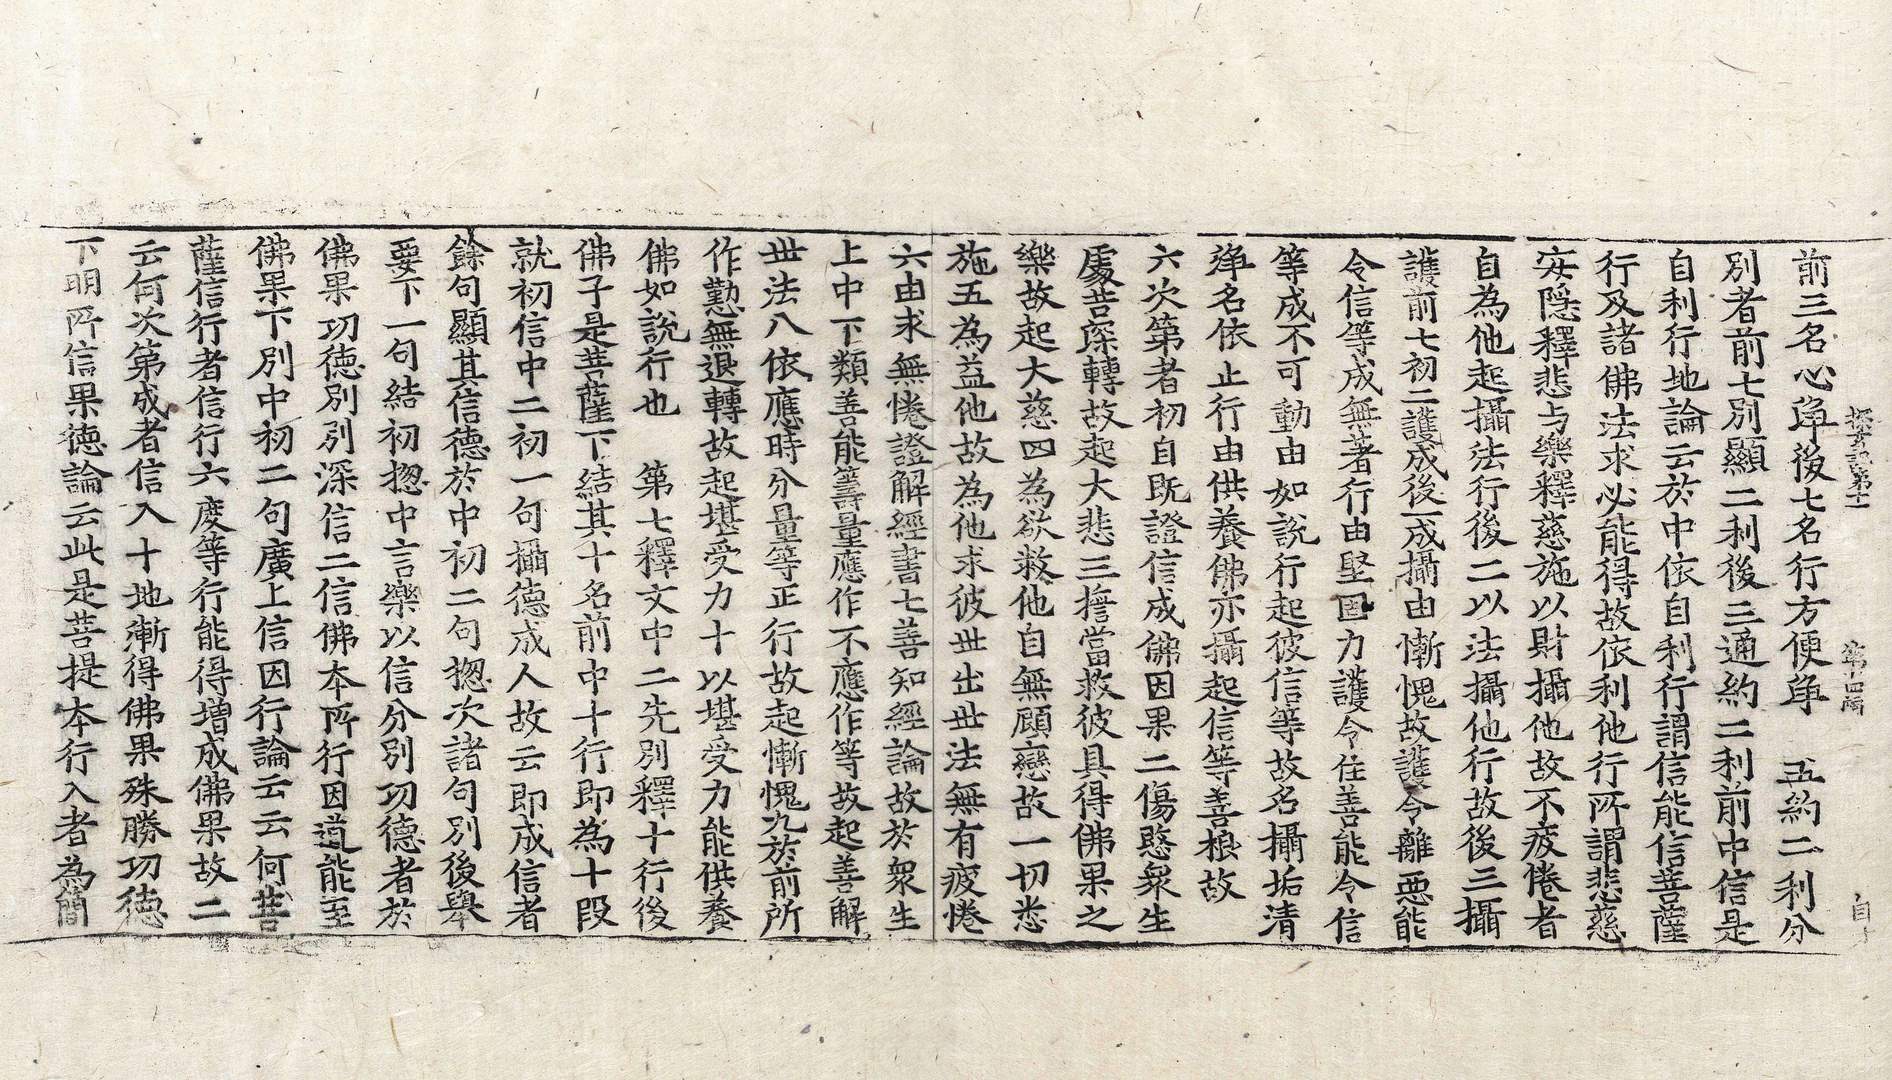 探玄記第十一 第十四幅 自
前三名心淨後七名行方便淨 五約二利分
別者前七別顯二利後三通約二利前中信是
自利行地論云於中依自利行謂信能信菩薩
行及諸佛法求必能得故依利他行所謂悲慈
安隱釋悲与樂釋慈施以財攝他故不疲倦者
自為他起攝法行後二以法攝他行故後三攝
護前七初二護成後一成攝由慚愧故護令離惡能
令信等成無著行由堅固力護令住善能令信
等成不可動由如說行起彼信等故名攝垢清
淨名依止行由供養佛亦攝起信等善根故
六次第者初自既證信成佛因果二傷愍眾生
處苦深轉故起大悲三擔當救彼具得佛果之
樂故起大慈四為欲救他自無顧戀故一切悉
施五為益他故為他求彼世出世法無有疲惓
六由求無惓證解經書七善知經論故於眾生
上中下類善能籌量應作不應作等故起善解
世法八依應時分量等正行故起慚愧九於前所
作懃無退轉故起堪受力十以堪受力能供養
佛如說行也 第七釋文中二先別釋十行後
佛子是菩薩下結其十名前中十行即為十段
就初信中二初一句攝德成人故云即成信者
餘句顯其信德於中初二句揔次諸句別後舉
要下一句結初揔中言樂以信分別功德者於
佛果功德別別深信二信佛本所行因道能至
佛果下別中初二句廣上信因行論云云何菩
薩信行者信行六度等行能得增成佛果故二
云何次第成者信入十地漸得佛果殊勝功德
下明所信果德論云此是菩提本行入者為簡